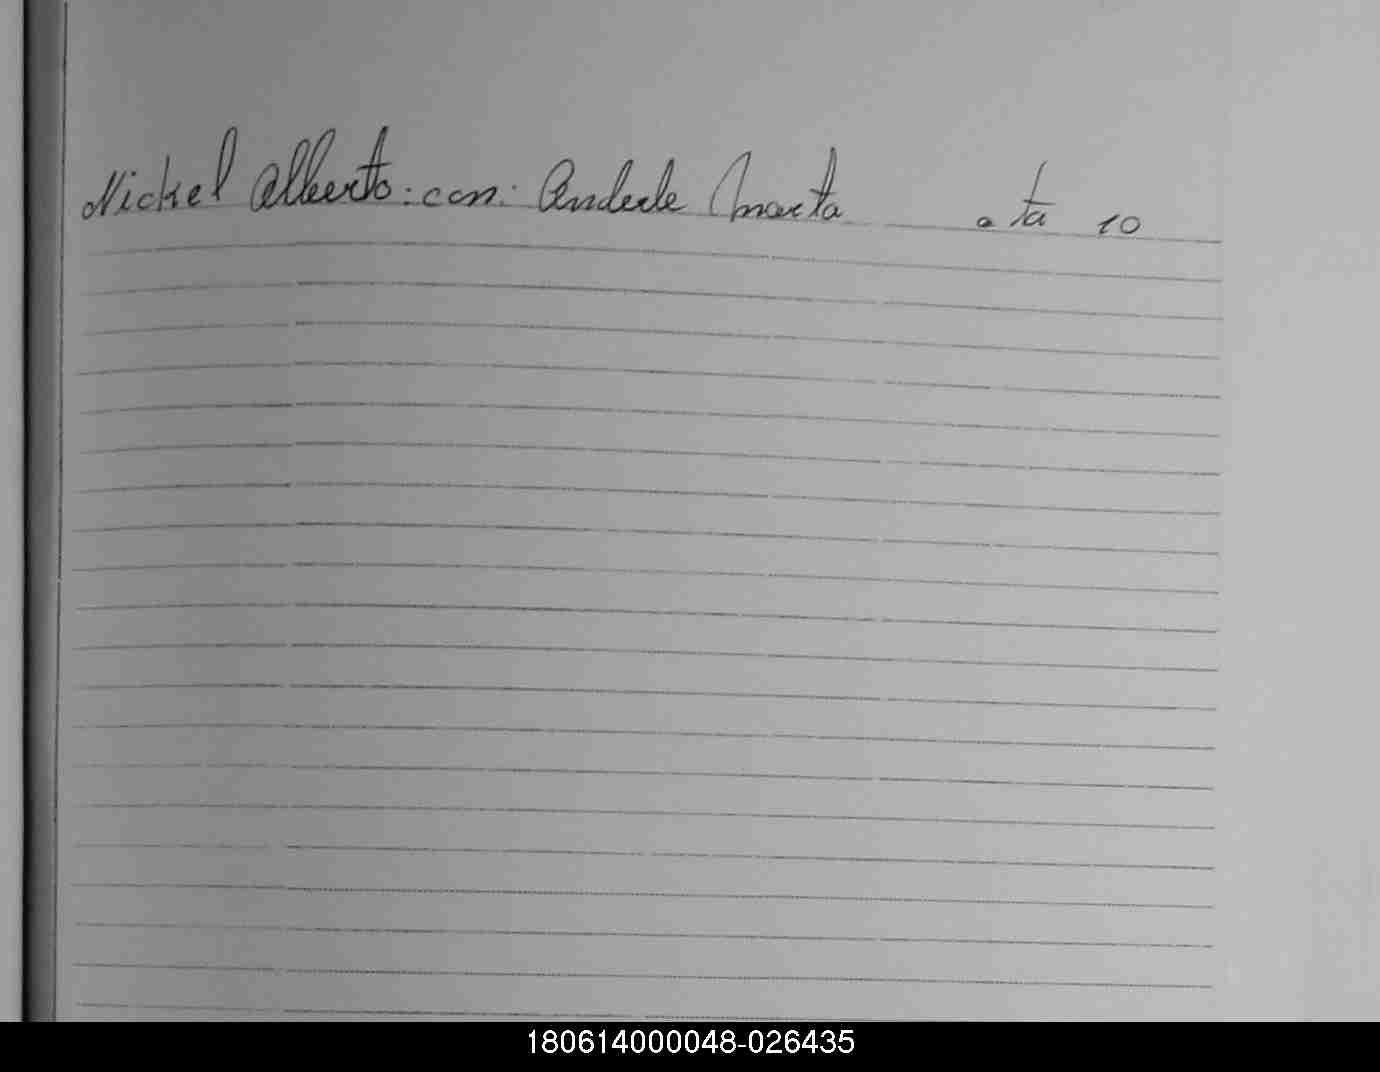 Nickel Alberto: con: Anderle Marta ata 10
180614000048-026435